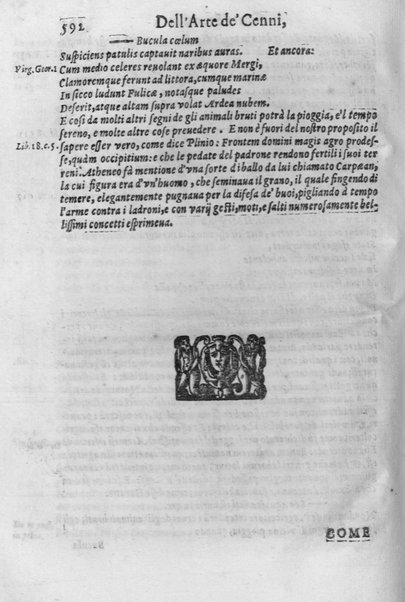 592 Dell'Arte de' Cenni,
Bucula cœlum
Suspiciens patulis captauit naribus auras. Et ancora:
Virg. Geor. 1 Cum medio celeres reuolant ex æquore Mergi,
Clamoremque ferunt ad littora, cumque marinæ
In sicco ludunt Fulicæ, notasque paludes
Deserit, atque altam supra volat Ardea nubem.
E così da molti altri segni de gli animali bruti potrà la pioggia, e'l tempo
sereno, e molte altre cose preuedere. E non è fuori del nostro proposito il
Lib. 18. c. 5. sapere esser vero, come dice Plinio: Frontem domini magis agro prodes-
se, quàm occipitium: e che le pedate del padrone rendono fertili i suoi ter
reni. Atheneo fà mentione d'vna sorte di ballo da lui chiamato Carpæan,
la cui figura era d'vn'huomo, che seminaua il grano, il quale fingendo di
temere, elegantemente pugnaua per la difesa de' buoi, pigliando à tempo
l'arme contra i ladroni, e con varij gesti, moti, e salti numerosamente bel-
lissimi concetti esprimeua.
COME